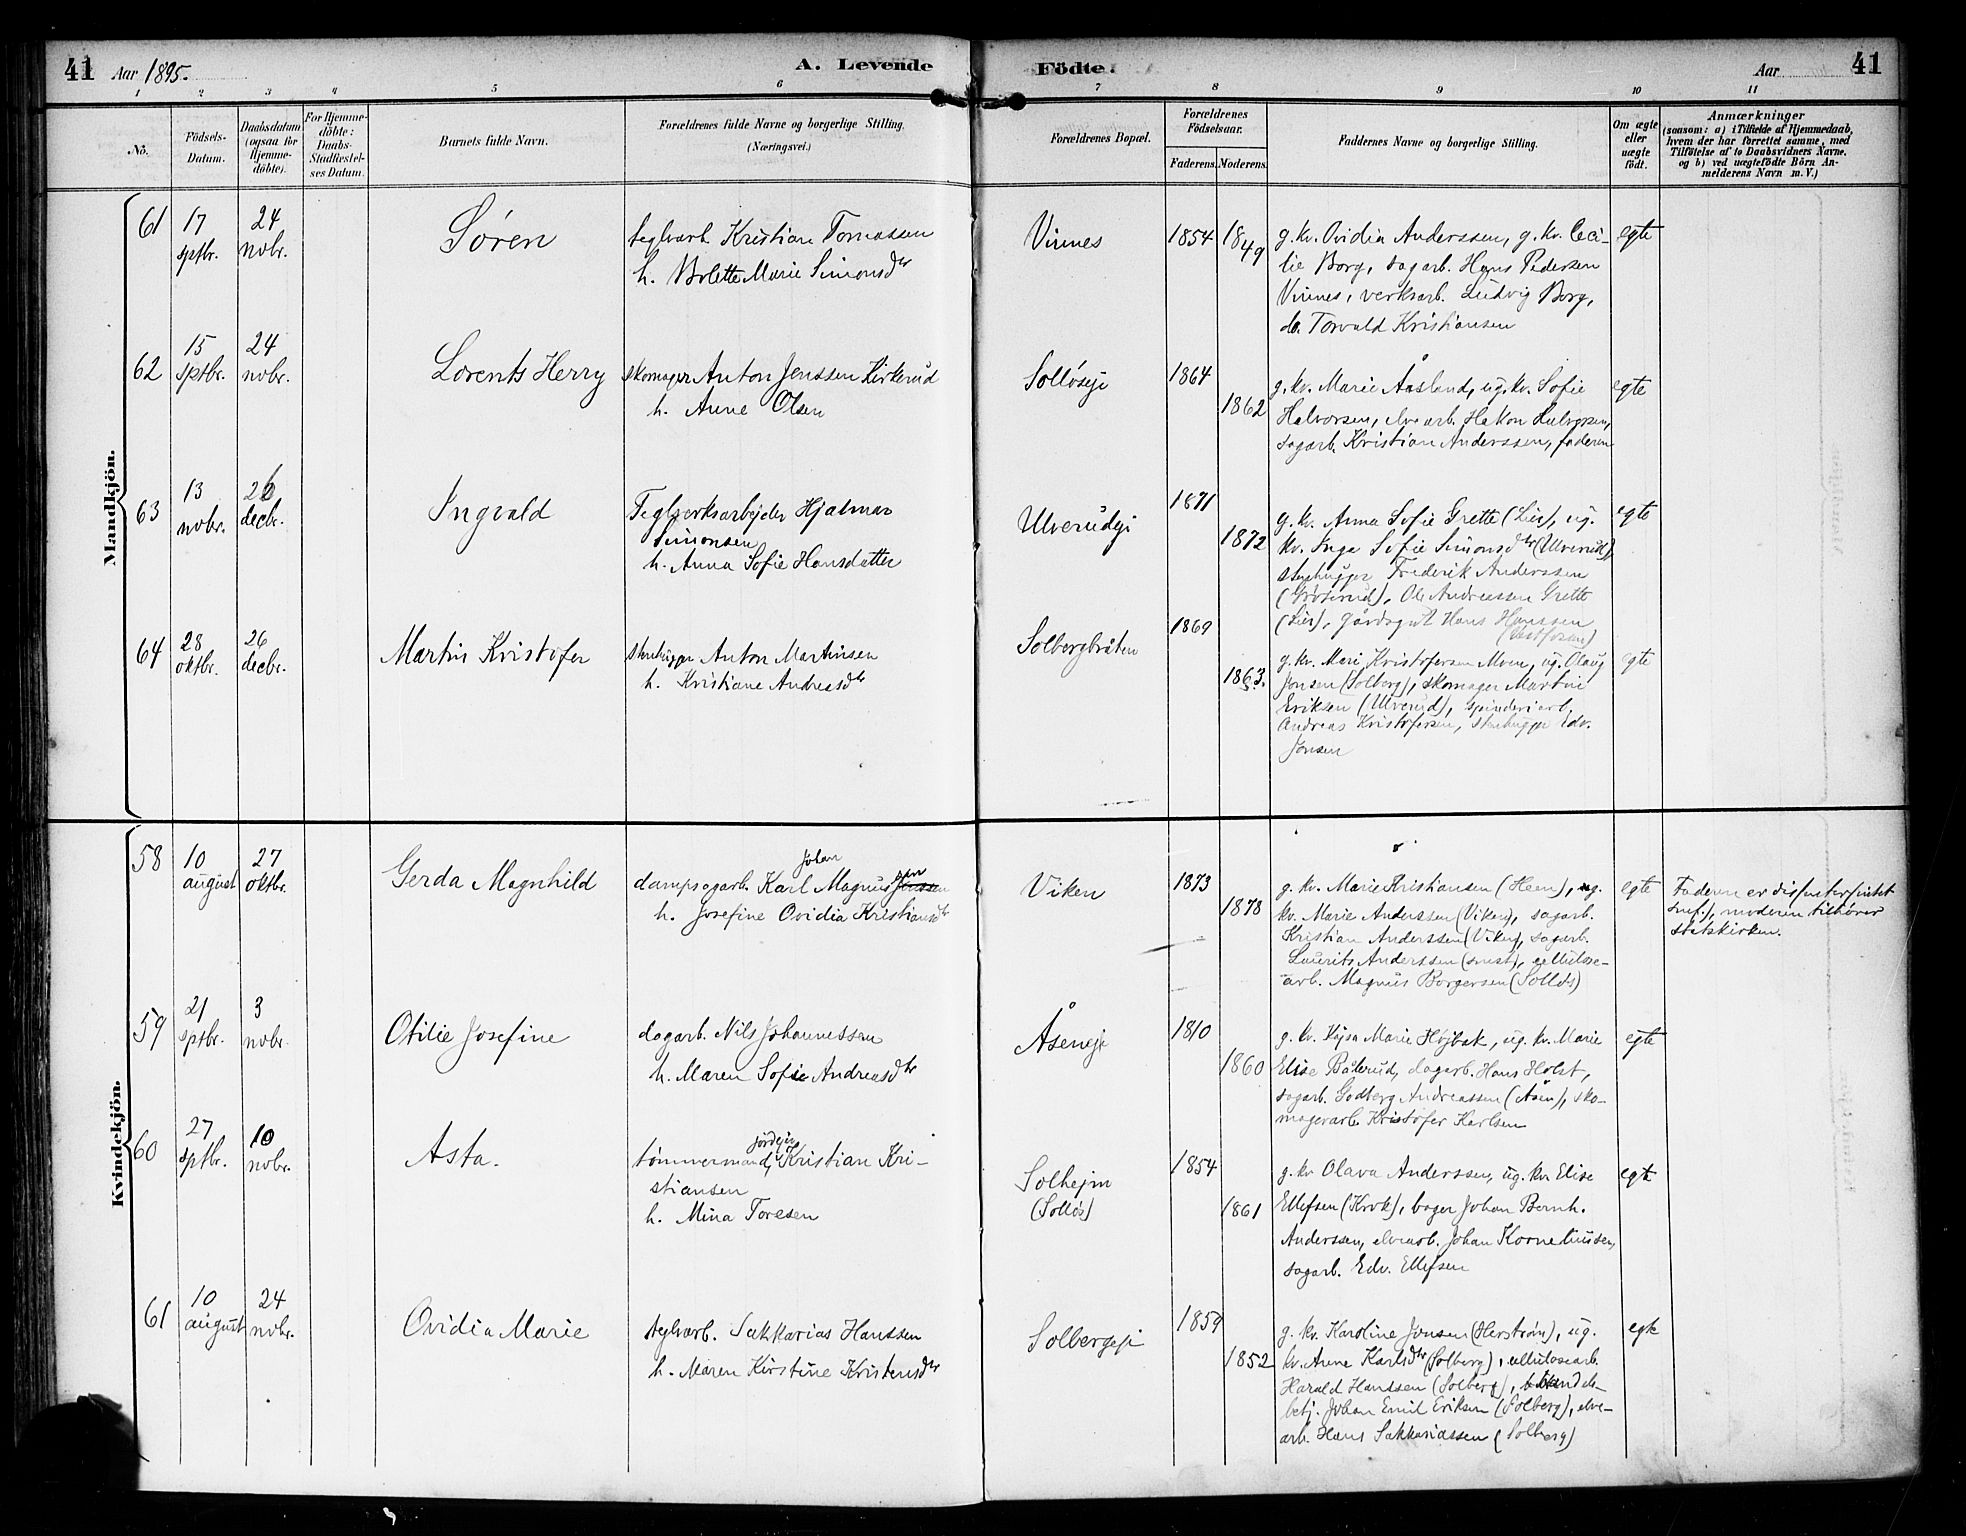 41 Aar 1895. A. Levende Födte. Aar 41
1 2 3 4 5 6 7 8 9 10 11
No.
Födsels-
Datum.
Daabsdatum
(ogsaa for
Hjemme-
döbte).
For Hjemme-
döbte:
Daabs-
Stadfæstel-
ses Datum.
Barnets fulde Navn.
Forældrenes fulde Navne og borgerlige Stilling.
(Næringsvei.)
Forældrenes Bopæl.
Forældrenes
Födselsaar.
Faderens. Moderens.
Faddernes Navne og borgerlige Stilling.
Om ægte
eller
uægte
födt.
Anmærkninger
(saasom: a) i Tilfælde af Hjemmedaab,
hvem der har forrettet samme, med
Tilföielse af to Daabsvidners Navne,
og b) ved uægtefödte Börn An-
melderens Navn m. V.)
Mandkjön.
61
17
sptbr.
24
novbr.
Søren
teglvarb. Kristian Tomassen
h. Bolette Marie Simonsdtr
Vinnes
1854
1849
g. kv. Ovidia Anderssen, g. kv. Ceci-
lie Borg, sagarb. Hans Pedersen
Vinnes, verksarb. Ludvig Borg,
do. Torvald Kristiansen
egte
62
15
sptbr.
24
novbr.
Lorents Herry
skomager Anton Jenssen Kirkerud
h. Anne Olsen
Solløseje
1864
1862
g. kv. Marie Aasland, ug. kv. Sofie
Halvorsen, elvearb. Hakon Halvorsen,
sagarb. Kristian Anderssen, faderen
egte
63
13
novbr.
26
decbr.
Ingvald
Teglverksarbejder Hjalmar
Simonsen
h. Anna Sofie Hansdatter
Ulverudeje
1871
1872
g. kv. Anna Sofie Grette (Lier), ug.
kv. Inga Sofie Simonsdtr (Ulverud),
stenhugger Frederik Anderssen
Ole Andreassen Grette
(Lier), gårdsgut Hans Hanssen
(Vestfossen)
egte
64
28
oktbr.
26
decbr.
Martin Kristofer
stenhugger Anton Martinsen
h. Kristiane Andreasdtr
Solbergbråten
1869
1863.
g. kv. Mari Kristofersen Moen, ug. Olaug
Jonsen (Solberg), skomager Martin
Eriksen (Ulverud), spinderiarb.
Andreas Kristofersen, stenhugger Edv.
Jonsen
egte
Kvindekjön.
58
10
august
27
oktbr.
Gerda Magnhild
Johan
dampsagarb. Karl Magnus
h. Josefine Ovidia Kristiansdtr
Viken
1873
1878
g. kv. Marie Kristiansen (Heen), ug.
kv. Marie Anderssen (Viken), sagarb.
Kristian Anderssen (Viken), sagarb.
Laurits Anderssen, cellulose-
arb. Magnus Borgersen (Solløs)
egte
Faderen er dissenter
moderen tilhører
statskirken.
59
21
sptbr.
3
novbr.
Otilie Josefine
dagarb. Nils Johannessen
h. Maren Sofie Andreasdtr
Åseneje
1810
1860
g. kv. Kajsa Marie Højbak, ug. kv. Marie
Elise Båserud, dagarb. Hans Holst,
sagarb. Godberg Andreassen (Åsen), sko-
magerarb. Kristofer Karlsen
egte
60
27
sptbr.
10
novbr.
Asta.
jordejer
tømmermand, Kristian Kri-
stiansen
h. Mina Toresen
Solhejm
(Solløs)
1854
1861
g. kv. Olava Anderssen, ug. kv. Elise
Ellefsen (Krok), bager Johan Bernh.
Anderssen, elvearb. Johan Korneliussen,
sagarb. Edv. Ellefsen
egte
61
10
august
24
novbr.
Ovidia Marie
teglvarb. Sakkarias Hanssen
h. Maren Kirstine Kristensdtr
Solbergeje
1859
1852
g. kv. Karoline Jonsen (Herstrøm), ug.
kv. Anne Karlsdtr (Solberg), cellulosearb.
Harald Hanssen (Solberg), handels-
betj. Johan Emil Eriksen (Solberg), elve-
arb. Hans Sakkariassen (Solberg)
egte